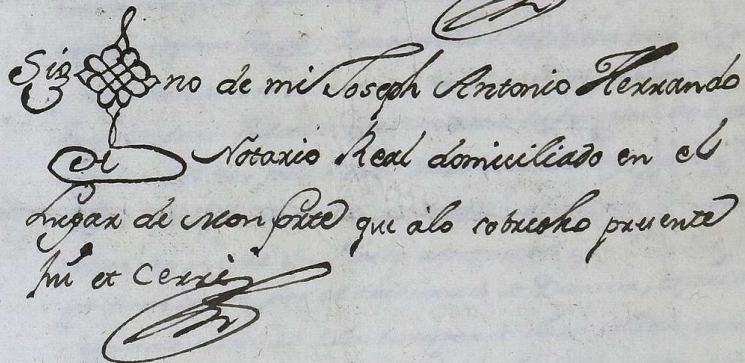 Sig no de mi Joseph Antonio Herrando
Notario Real domiciliado en el
Lugar de Monforte que a lo sobredho presente
fui et Cerre